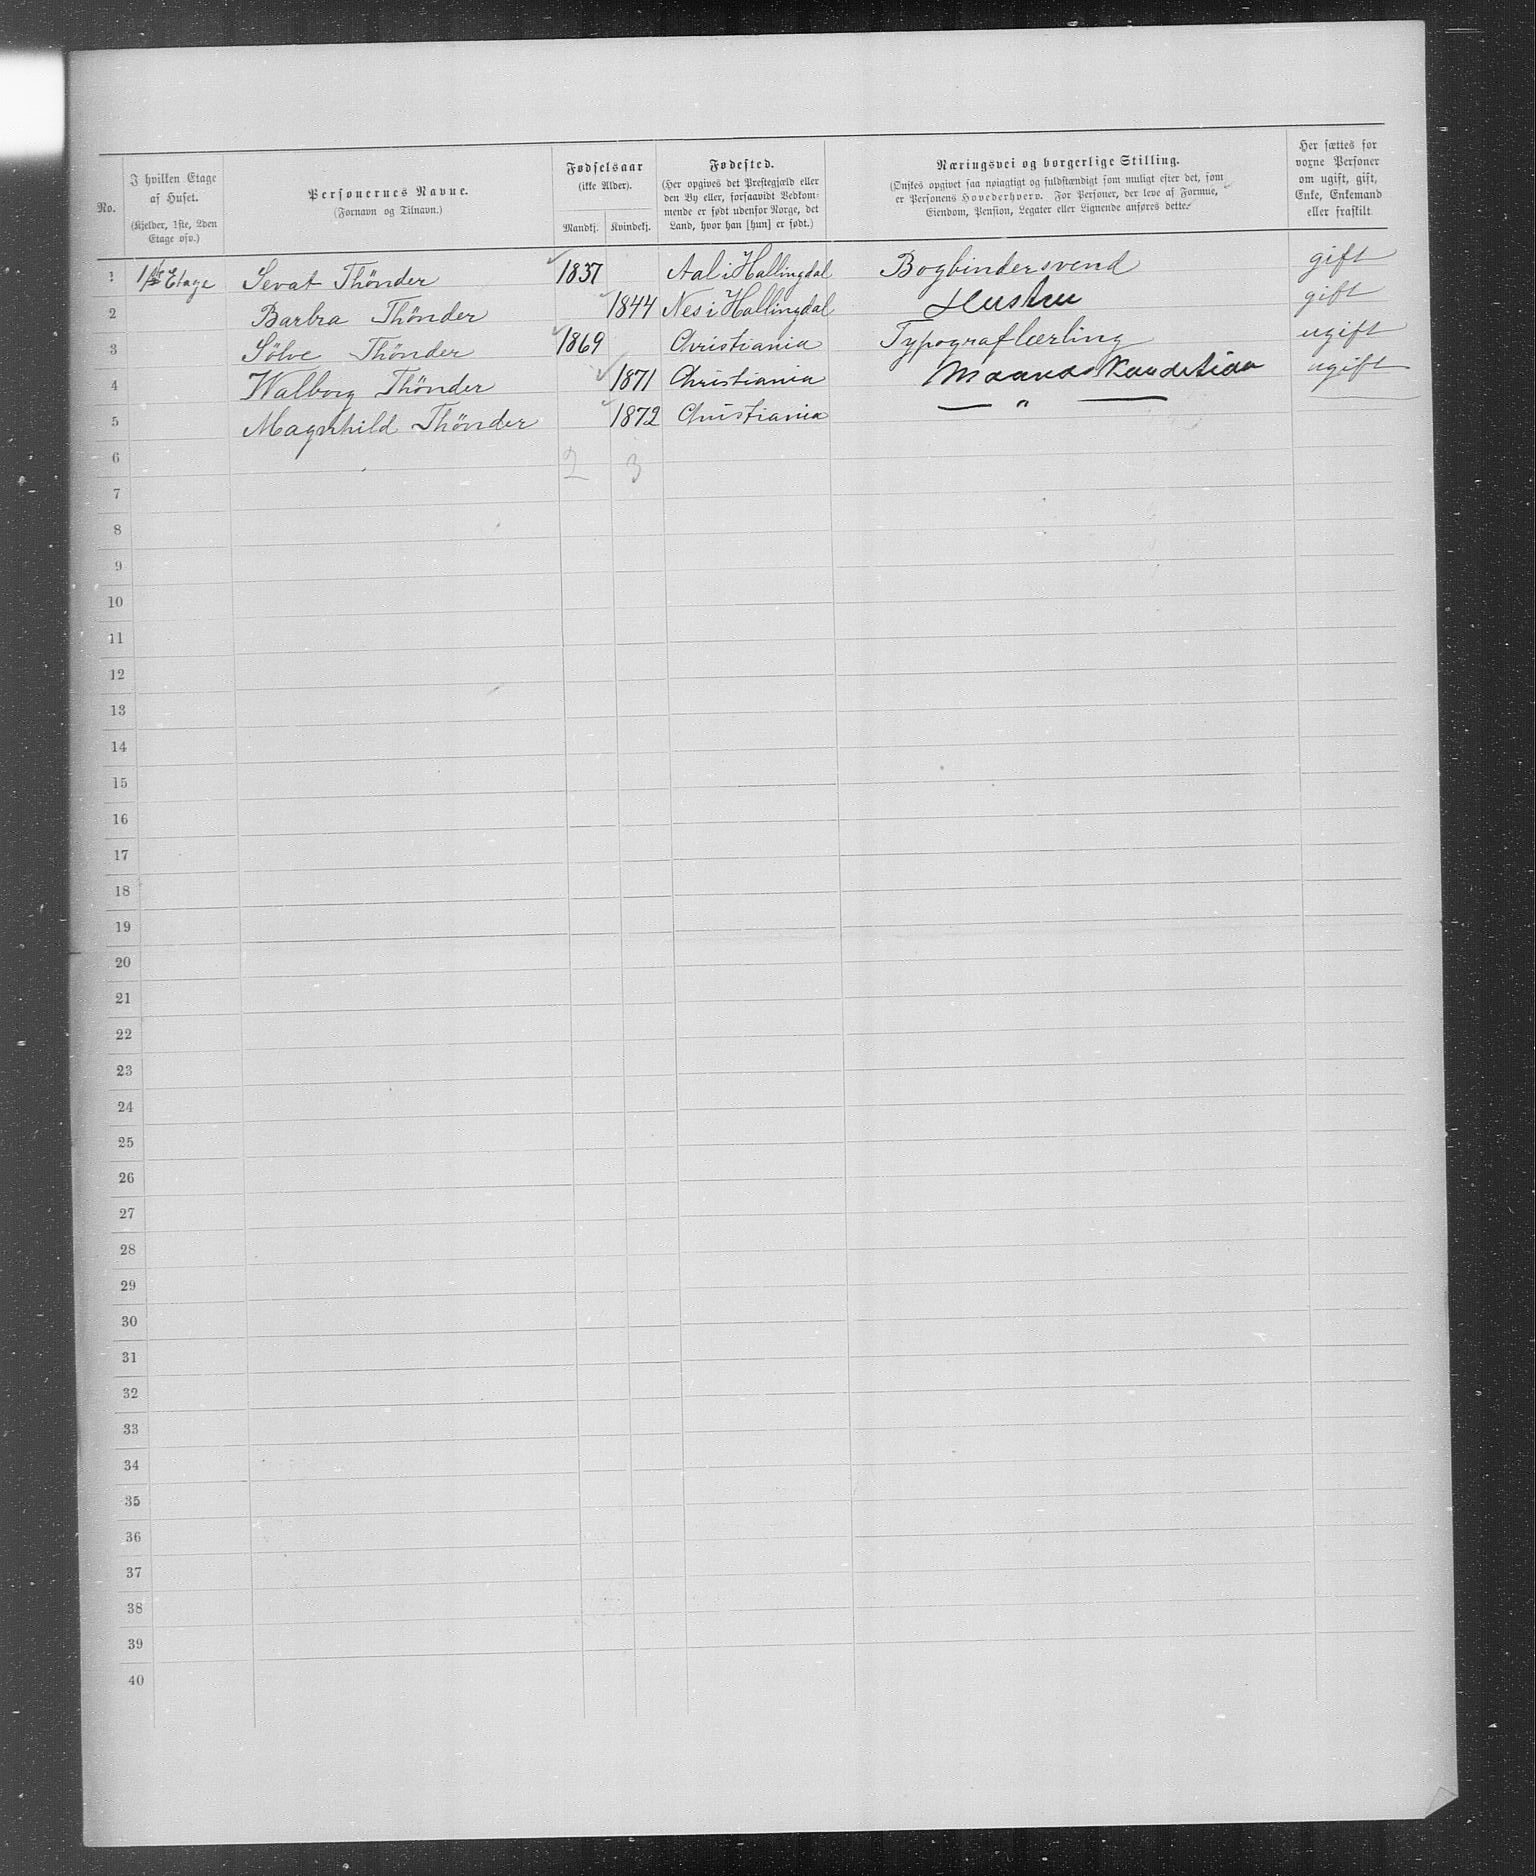 No.
I hvilken Etage af Huset.
(Kjelder, 1ste, 2den Etage osv.)
Personernes Navne.
(Fornavn og Tilnavn.)
Fødselsaar
(ikke Alder).
Mandkj. Kvindekj.
Fødested.
(Her opgives det Prestegjæld eller
den By eller, forsaavidt Vedkom-
mende er født udenfor Norge, det
Land, hvor han [hun] er født.)
Næringsvei og borgerlige Stilling.
(Ønskes opgivet saa nøiagtigt og fuldstændigt som muligt efter det, som
er Personens Hovederhverv. For Personer, der leve af Formue,
Eiendom, Pension, Legater eller Lignende anføres dette.
Her sættes for
voxne Personer
om ugift, gift,
Enke, Enkemand
eller fraskilt
1 1ste Etage Sevat Thönder 1837 Aal i Hallingdal Bogbindersvend gift
2 Barbra Thönder 1844 Nes i Hallingdal Hustru gift
3 Sölve Thönder 1869 Christiania Typograflærling ugift
4 Walborg Thönder 1871 Christiania ugift
5 Magnhild Thönder 1872 Christiania — " —
6 2 3
7
8
9
10
11
12
13
14
15
16
17
18
19
20
21
22
23
24
25
26
27
28
29
30
31
32
33
34
35
36
37
38
39
40